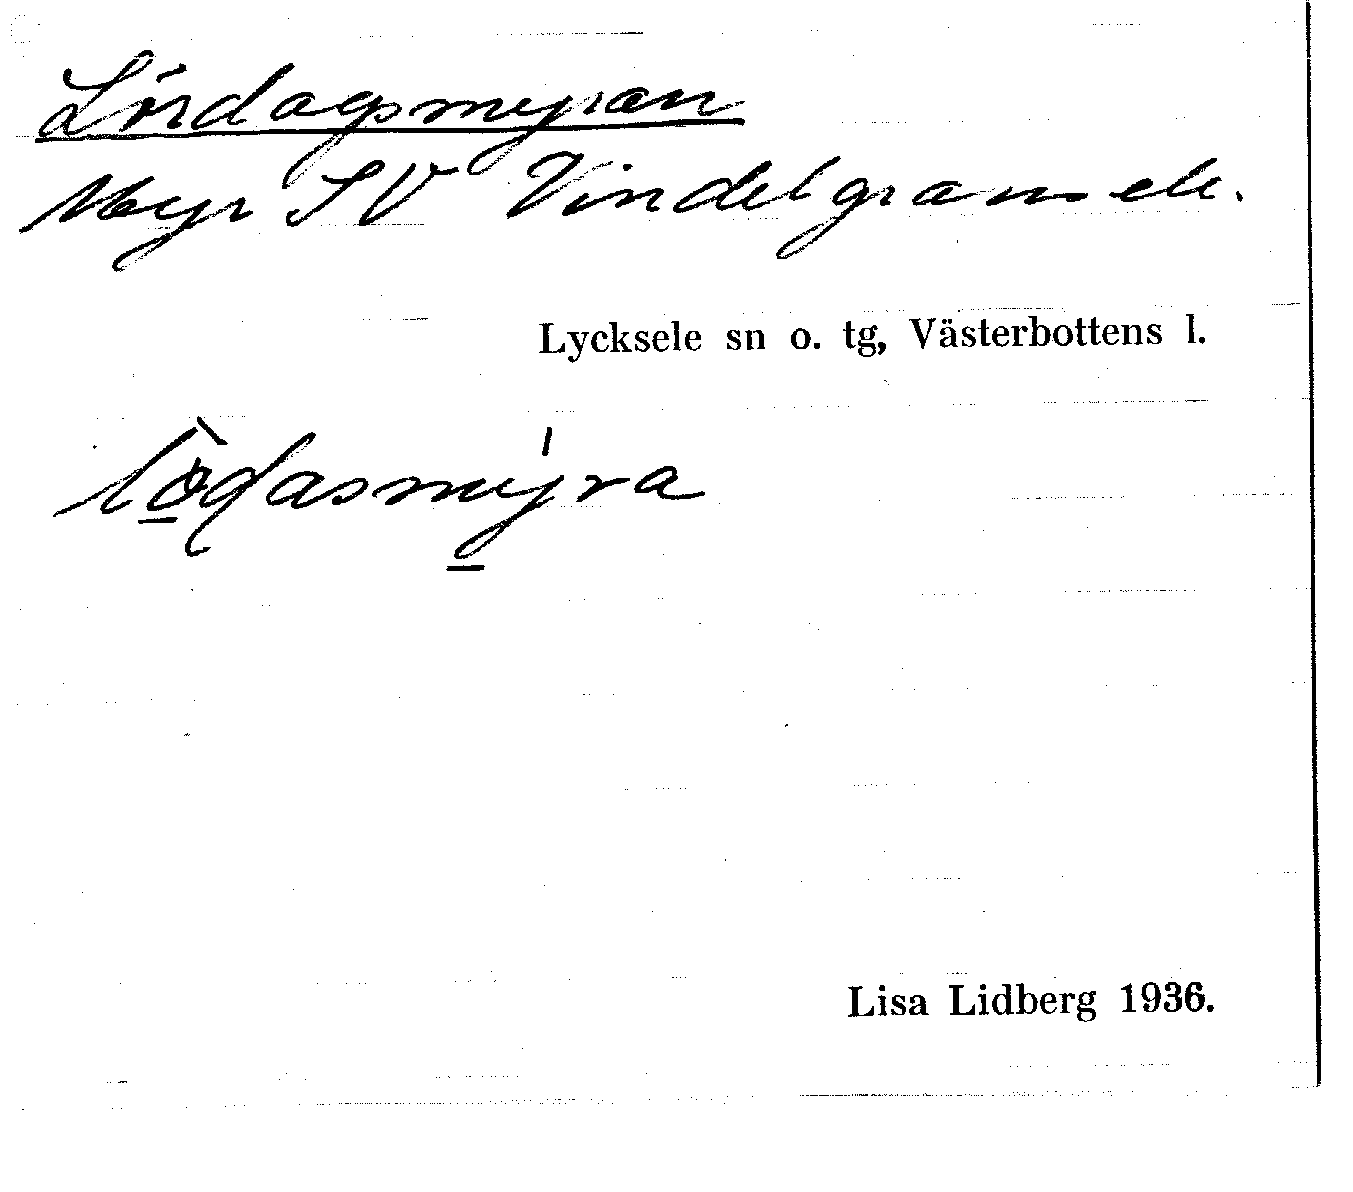 Lördagsmyran
Myr SV Vindelgransele.
Lycksele sn o. tg, Västerbottens l.
lò̱ɖasmý̱ra
Lisa Lidberg 1936.